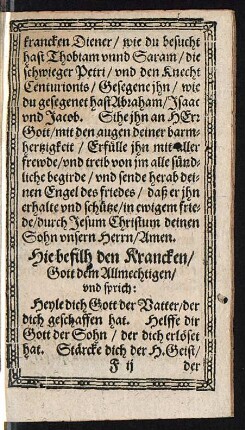 krancken Diener / wie du besucht
hast Thobiam vnnd Saram / die
schwieger Petri / vnd den Knecht
Centurionis / Gesegene jhn / wie
du gesegenet hast Abraham / Jsaac
vnd Jacob. Sihe jhn an HErr
Gott / mit den augen deiner barm-
hertzigkeit / Erfülle jhn mit aller
frewde / vnd treib von jm alle sünd-
liche begirde / vnd sende herab dei-
nen Engel des friedes / daß er jhn
erhalte vnd schütze / in ewigem frie-
de / durch Jesum Christum deinen
Sohn vnsern Herrn / Amen.
Hie befilh den Krancken /
Gott dem Allmechtigen /
vnd sprich:
Heyle dich Gott der Vatter / der
dich geschaffen hat. Helffe dir
Gott der Sohn / der dich erlöset
hat. Stärcke dich der H. Geist /
F ij der